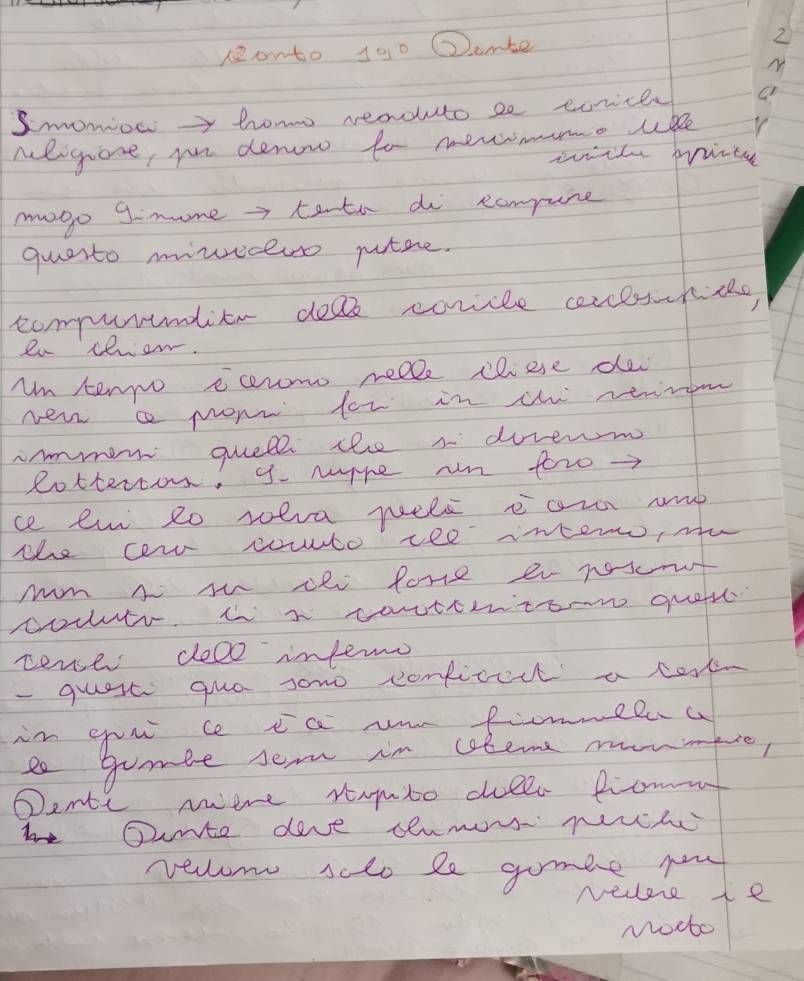 Canto 19° Dante
Simoniaci → hanno venduto le cariche
religiose, per denaro fa mercimonio delle
cariche
mago Simone → tenta di comprare
questo miracoloso potere.
compravendita delle cariche ecclesiastiche,
la chiesa.
Un tempo c'erano nelle chiese dei
veri e propri fori in cui venivano
immersi quelli che si dovevano
battezzare. Si ruppe un foro →
e lui lo salva perché c'era uno
che era caduto all'interno, ma
non si sa chi fosse la persona
caduta. si caratterizzano questi
cerchi dell'inferno
- questi qua sono conficcati a testa
in giù e c'è una fiammella
le gambe sono in
Dante viene stupito dalla fiamma
Dante deve chinarsi perché
vedono solo le gambe per
vedere il
volto